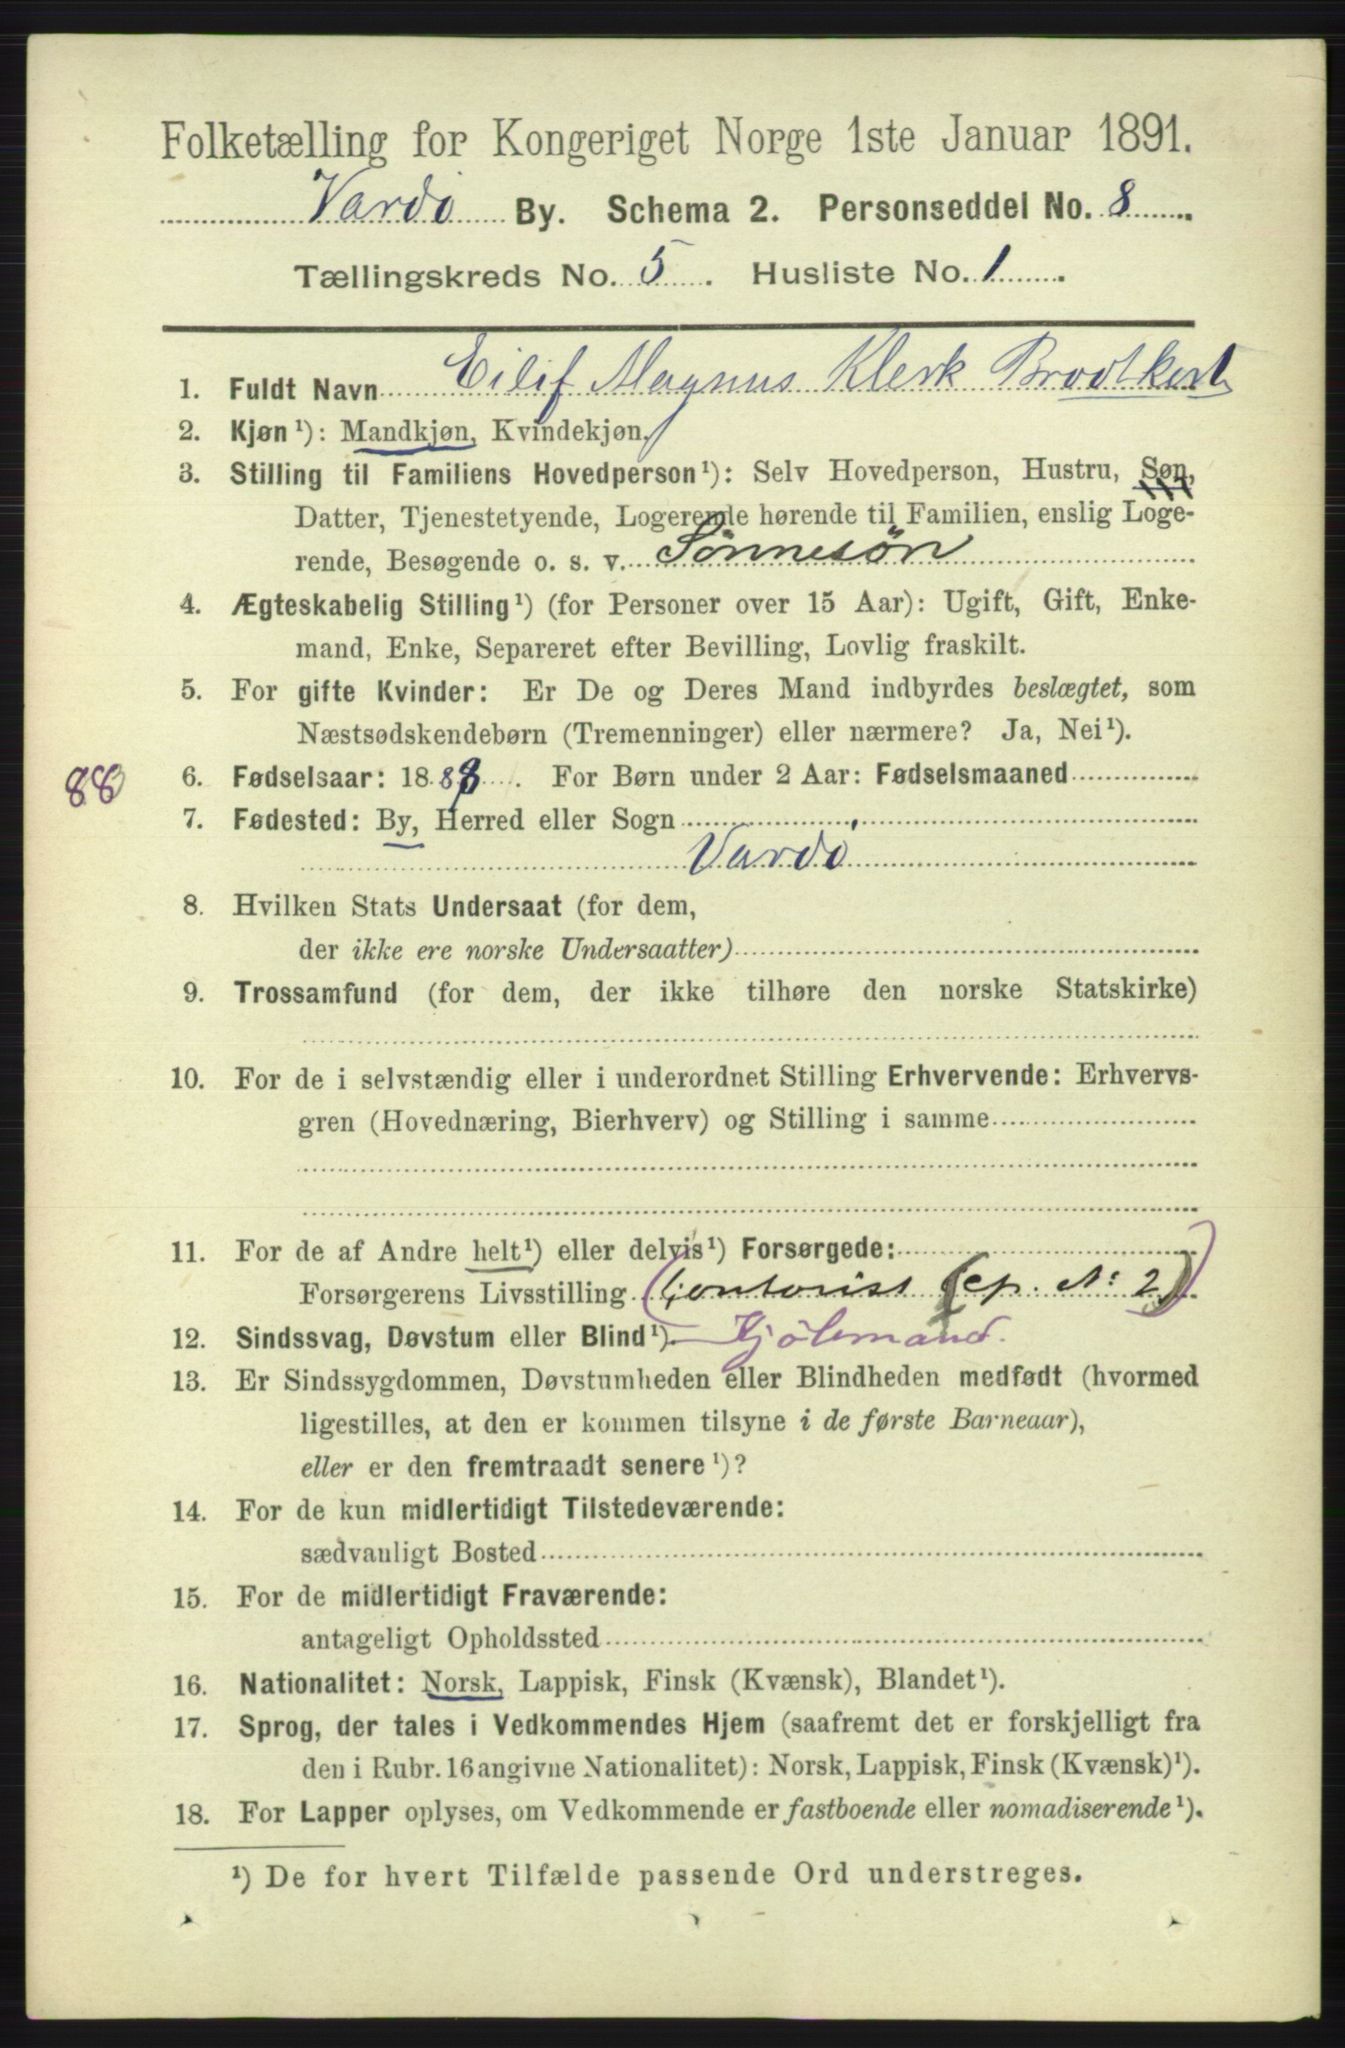 Folketælling for Kongeriget Norge 1ste Januar 1891.
Vardö By. Schema 2. Personseddel No. 8
Tællingskreds No. 5. Husliste No. 1.
1. Fuldt Navn Eilif Magnus Klerk Brodtkorb
2. Kjøn¹): Mandkjøn, Kvindekjøn.
3. Stilling til Familiens Hovedperson¹): Selv Hovedperson, Hustru, Søn,
Datter, Tjenestetyende, Logerende hørende til Familien, enslig Loge-
rende, Besøgende o. s. v. Sönnesön
4. Ægteskabelig Stilling¹) (for Personer over 15 Aar): Ugift, Gift, Enke-
mand, Enke, Separeret efter Bevilling, Lovlig fraskilt.
5. For gifte Kvinder: Er De og Deres Mand indbyrdes beslægtet, som
Næstsødskendebørn (Tremenninger) eller nærmere? Ja, Nei¹).
88 6. Fødselsaar: 1888. For Børn under 2 Aar: Fødselsmaaned
7. Fødested: By, Herred eller Sogn
Vardö
8. Hvilken Stats Undersaat (for dem,
der ikke ere norske Undersaatter)
9. Trossamfund (for dem, der ikke tilhøre den norske Statskirke)
10. For de i selvstændig eller i underordnet Stilling Erhvervende: Erhvervs-
gren (Hovednæring, Bierhverv) og Stilling i samme
11. For de af Andre helt¹) eller delvis¹) Forsørgede:
Forsørgerens Livsstilling (Contorist (cp. No 2)
12. Sindssvag, Døvstum eller Blind¹). Kjölemand.
13. Er Sindssygdommen, Døvstumheden eller Blindheden medfødt (hvormed
ligestilles, at den er kommen tilsyne i de første Barneaar),
eller er den fremtraadt senere¹)?
14. For de kun midlertidigt Tilstedeværende:
sædvanligt Bosted
15. For de midlertidigt Fraværende:
antageligt Opholdssted
16. Nationalitet: Norsk, Lappisk, Finsk (Kvænsk), Blandet¹).
17. Sprog, der tales i Vedkommendes Hjem (saafremt det er forskjelligt fra
den i Rubr. 16 angivne Nationalitet): Norsk, Lappisk, Finsk (Kvænsk)¹).
18. For Lapper oplyses, om Vedkommende er fastboende eller nomadiserende¹).
¹) De for hvert Tilfælde passende Ord understreges.